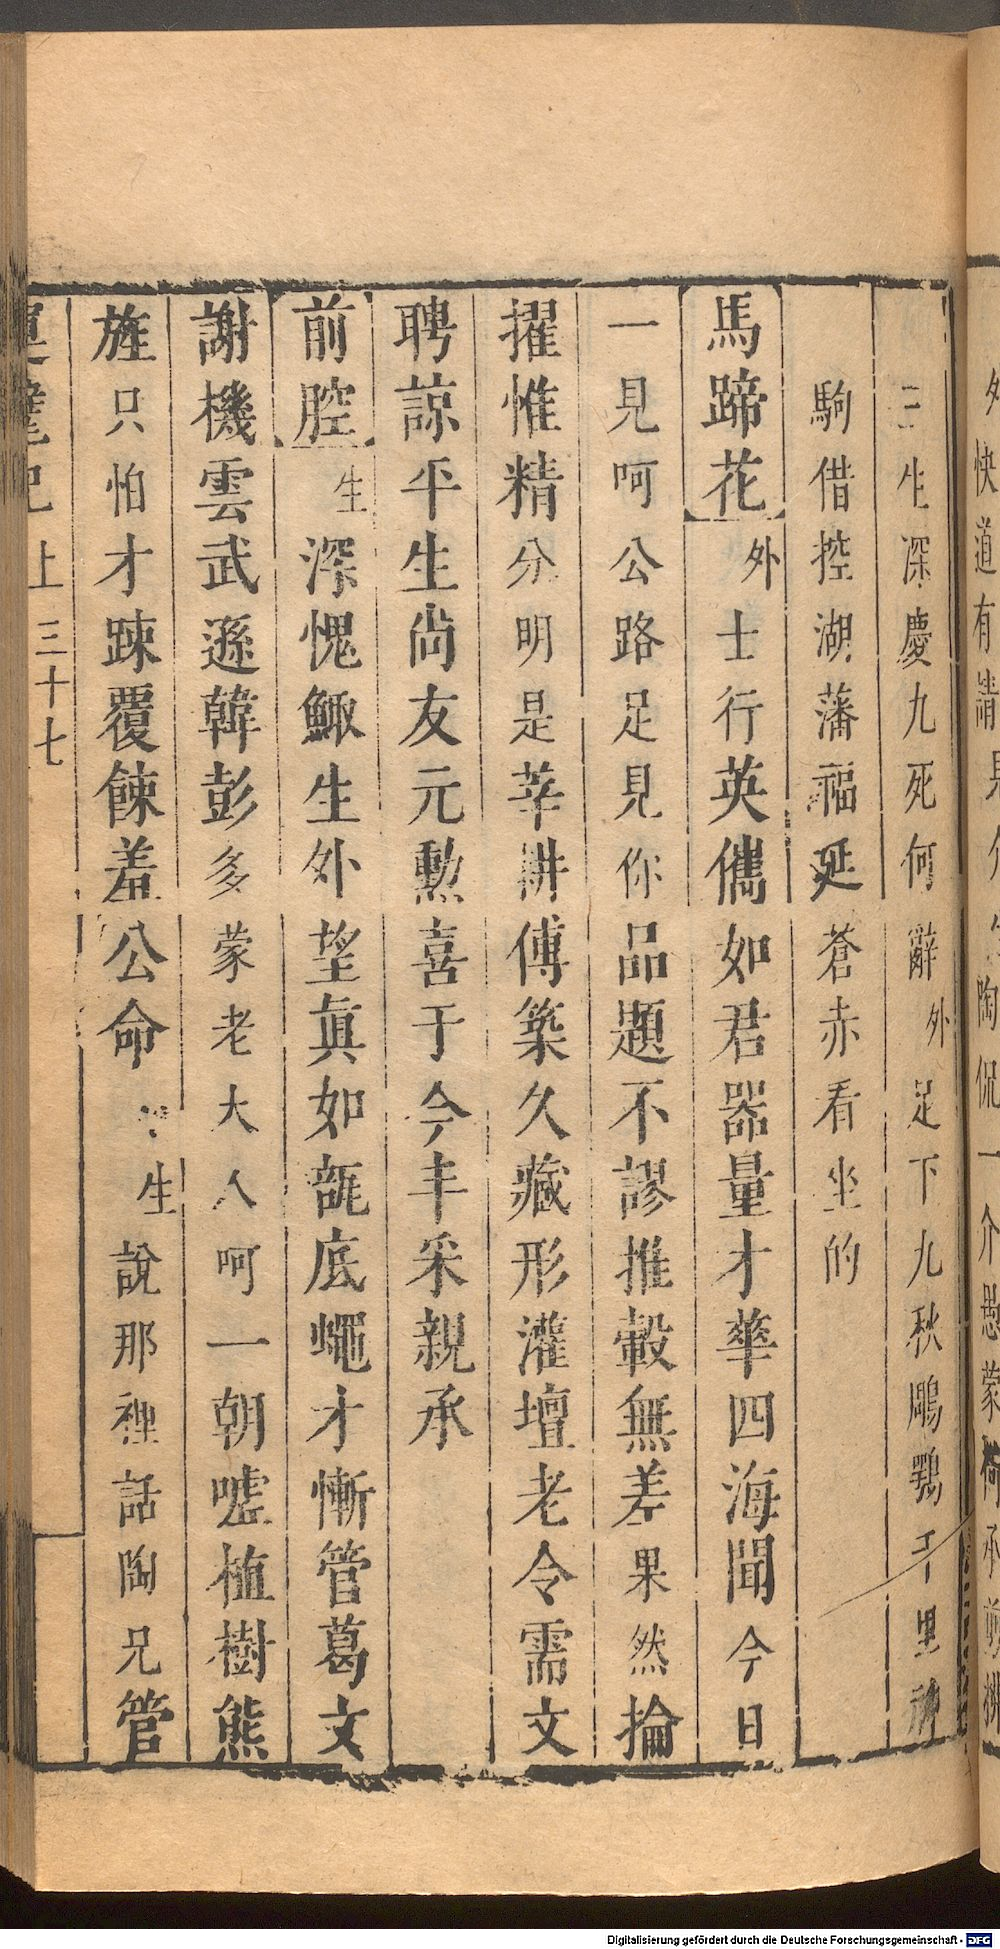 夕快道有請
陶侃一介
三生深慶九死何辭外足下九秋鵰鶚千里神
駒借控湖藩福延蒼赤看坐的
馬蹄花外士行英儁如君器量才華四海聞今日
一見呵公路足見你品題不謬推轂無差果然掄
擢惟精分明是莘耕傅築久藏形灌壇老令需文
聘諒平生尚友元勲喜于今丰采親承
前腔生深愧鯫生外望眞如瓿底蠅才慚管葛文
謝機雲武遜韓彭多蒙老大人呵一朝噓植樹熊
旌只怕才踈覆餗羞公命
生說那裡話陶兄管
運甓記 上 三十七
Digitalisierung gefördert durch die Deutsche Forschungsgemeinschaft - DFG